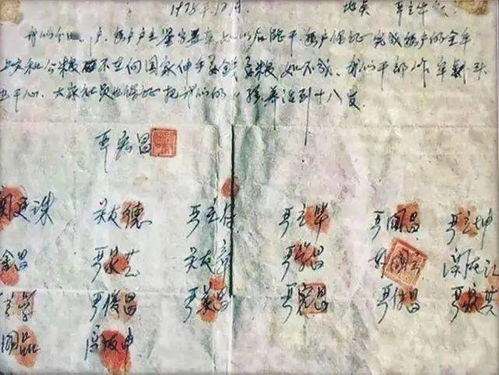 1978年12月 地点 严立华家
我们分田到户 每户户主签字盖章 如以后能干 每户保证完成每户的全年
上交和公粮 不在向国家伸手要钱要粮 如不成 我们干部作牢刹头
也干心 大家社员也保证把我们的小孩养活到十八岁
严宏昌
廷珠 关友德 严立付 严立华 严国昌 严立坤
金昌 严家芝 关友章 严学昌 韩国云 关友江
立学 严俊昌 严美昌 严宏昌 严付昌 严家其
国品 关友申